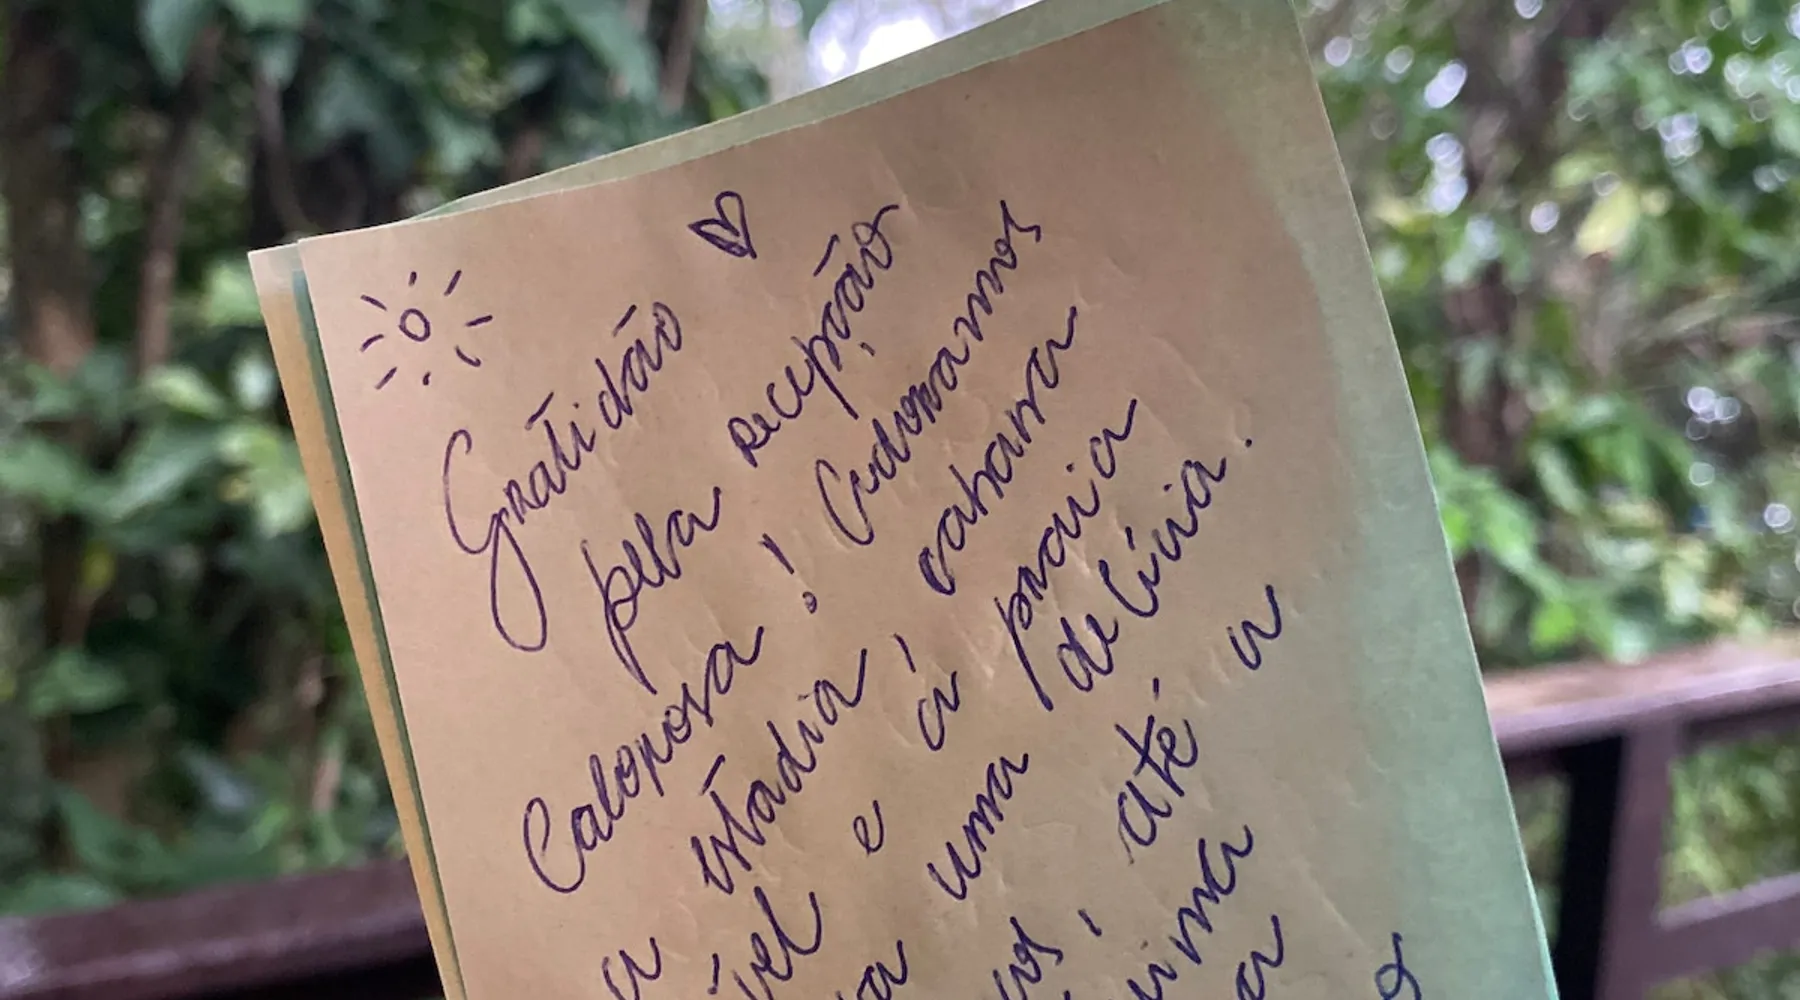 Gratidão
pela recepção
Calorosa! Adoramos
a estadia, cabana
e á praia
uma delícia.
até a